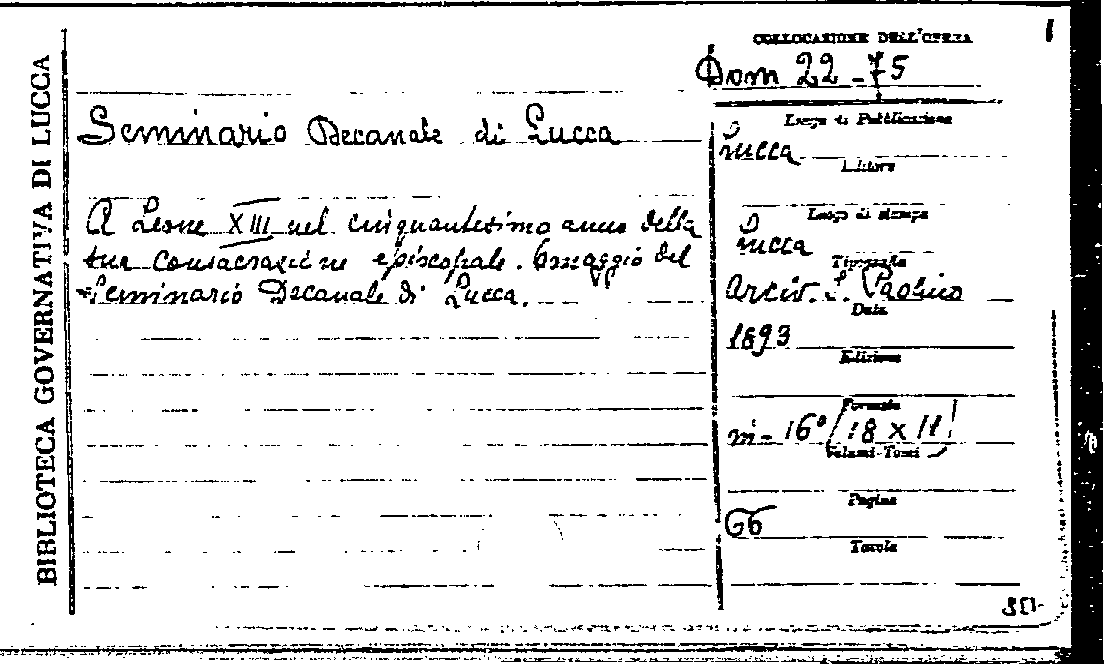 BIBLIOTECA GOVERNATIVA DI LUCCA
COLLOCAZIONE DELL'OPERA
Dom 22-75
Seminario Decanale di Lucca
A Leone XIII nel cinquantesimo anno della
sua consacrazione episcopale. Omaggio del
Seminario Decanale di Lucca.
Luogo di Pubblicazione
Lucca
Editore
Luogo di stampa
Lucca
Tipografia
Arciv. S. Paolino
Data
1893
Edizione
Formato
in-16° /18 x 11/
Volumi-Tomi
Pagine
66
Tavole